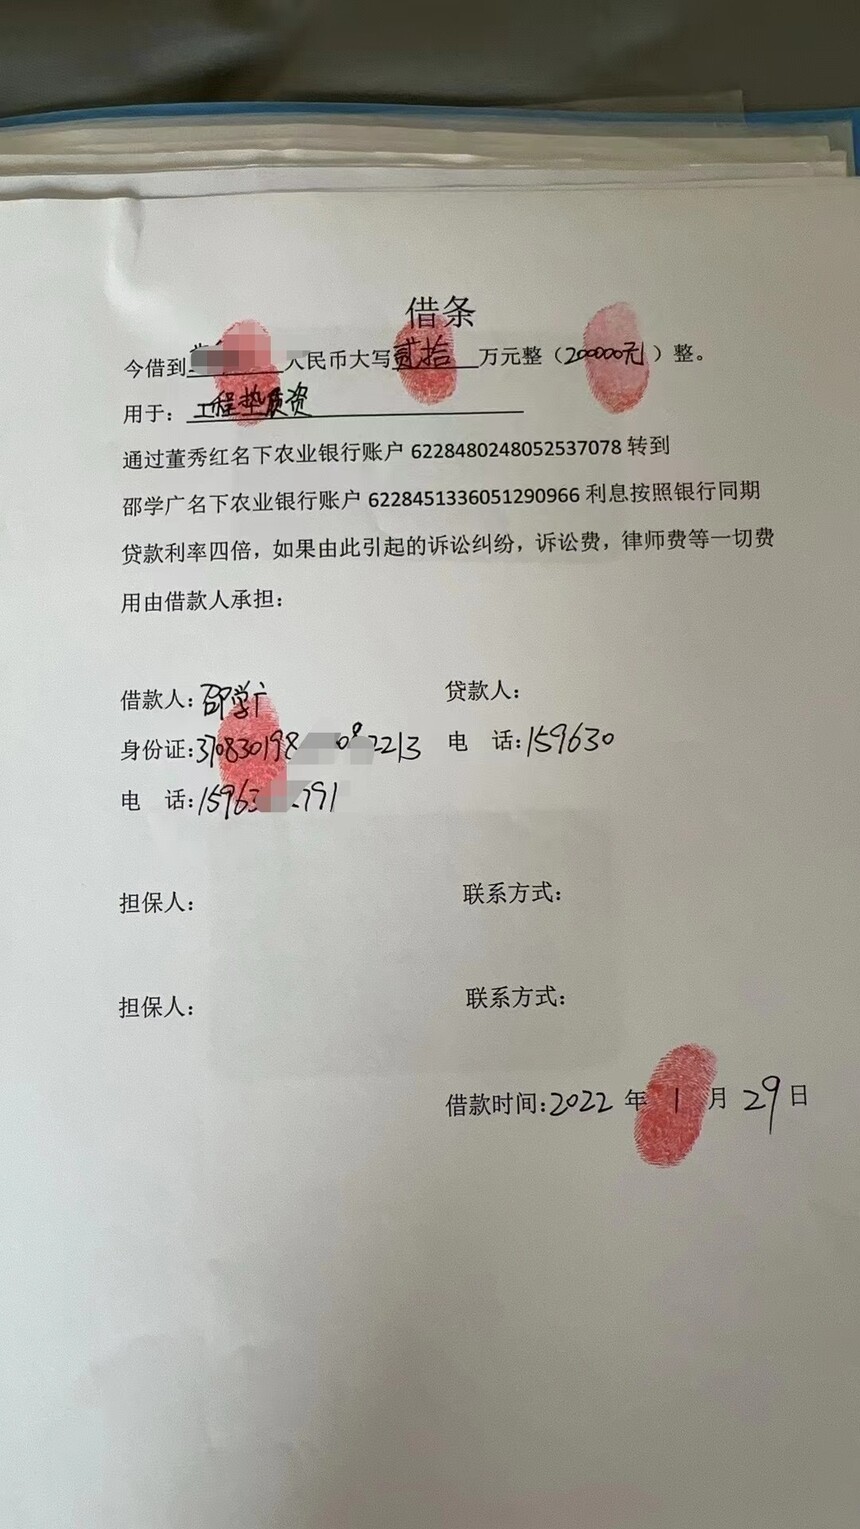 借条
今借到 人民币大写贰拾万元整（200000元）整。
用于：工程垫质资
通过董秀红名下农业银行账户 6228480248052537078 转到
邵学广名下农业银行账户 6228451336051290966 利息按照银行同期
贷款利率四倍，如果由此引起的诉讼纠纷，诉讼费，律师费等一切费
用由借款人承担：
借款人：邵学广 贷款人：
身份证：370830198 082213 电 话：159630
电 话：15963 791
担保人： 联系方式：
担保人： 联系方式：
借款时间：2022 年 1 月 29 日